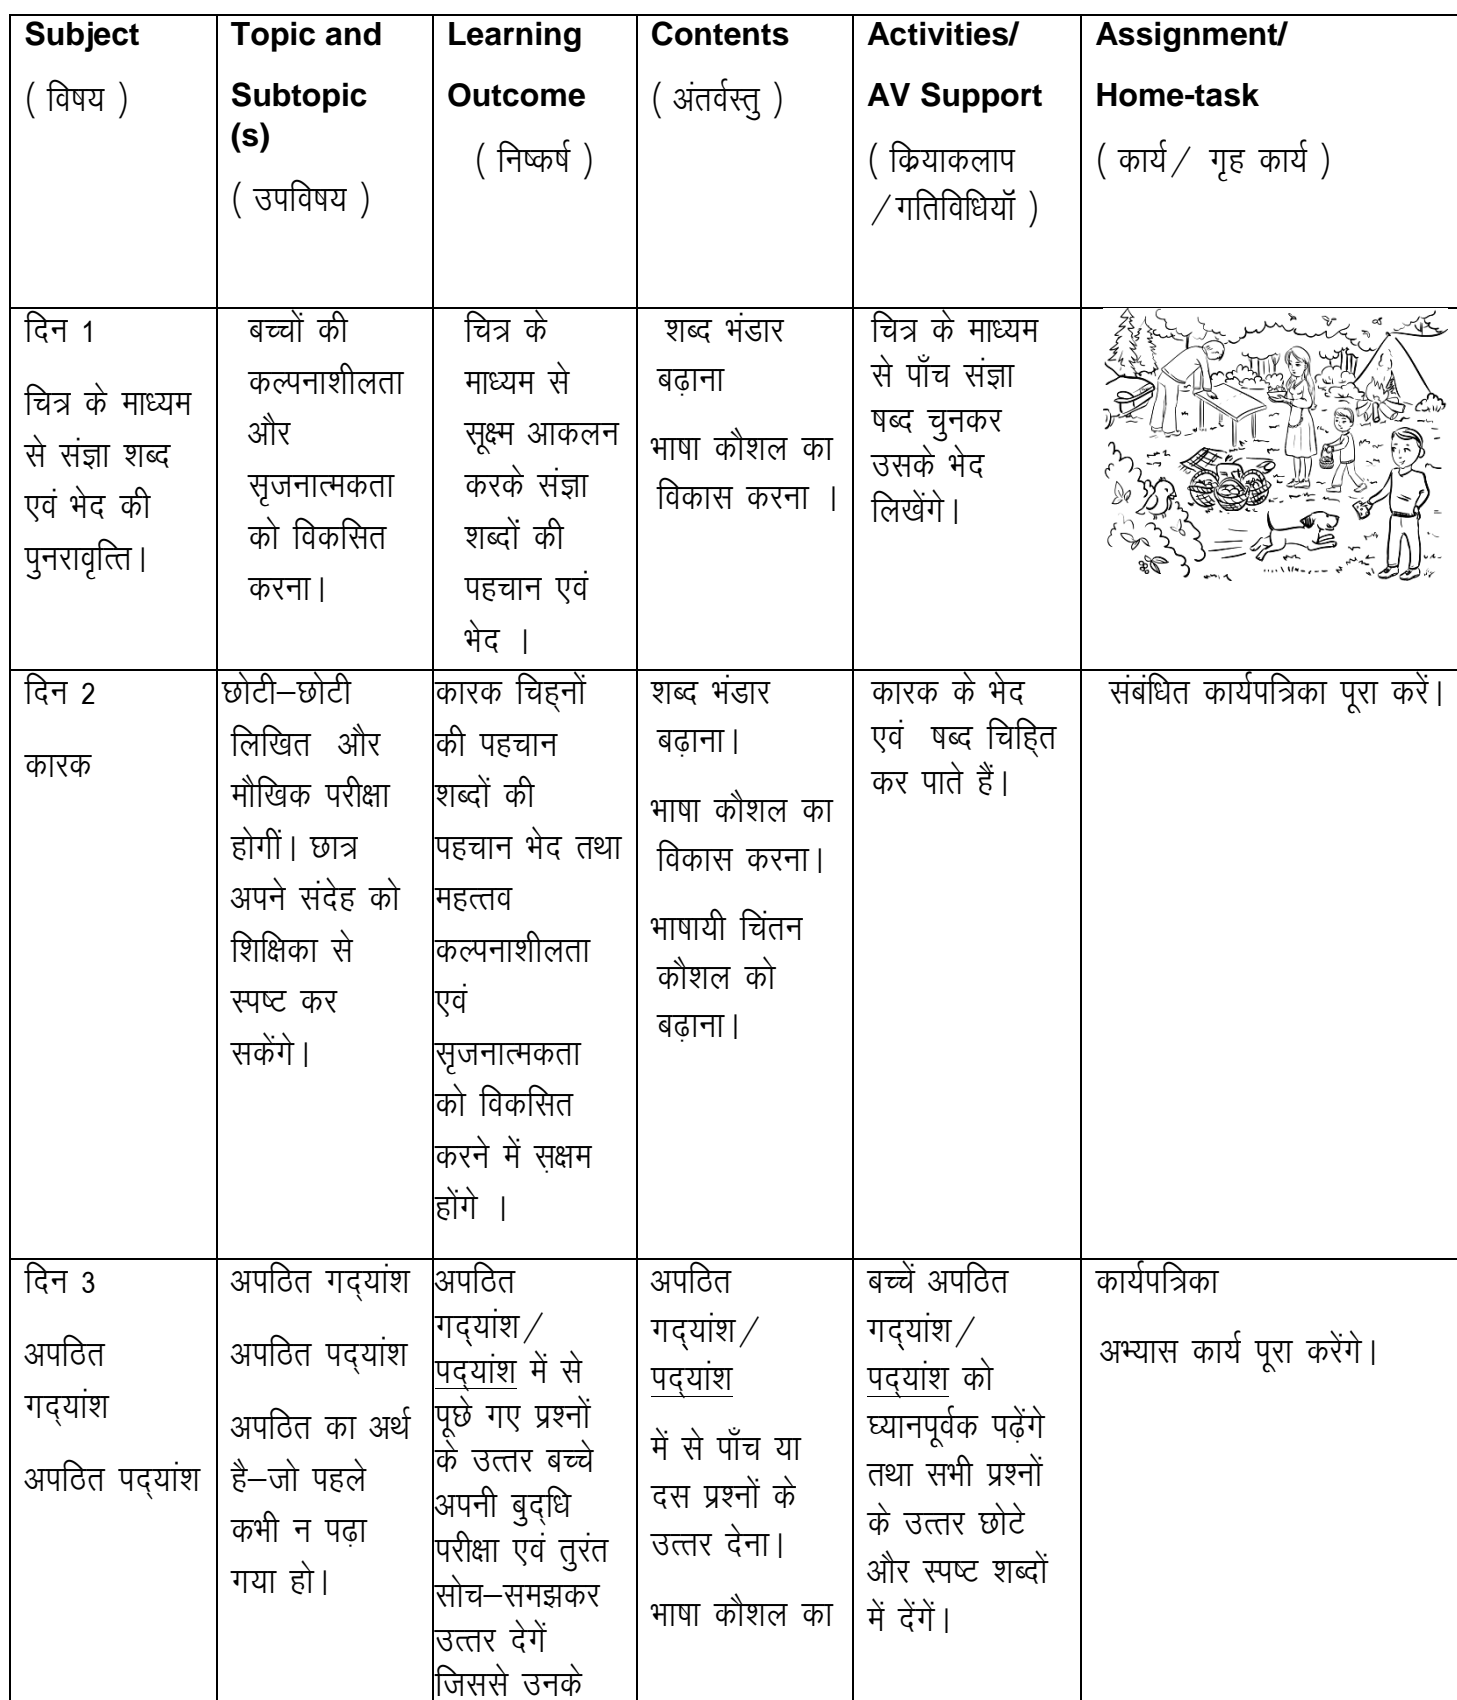 Subject
( विषय )
Topic and
Subtopic
(s)
( उपविषय )
Learning
Outcome
( निष्कर्ष )
Contents
( अंतर्वस्तु )
Activities/
AV Support
( क्रियाकलाप
/गतिविधियॉ )
Assignment/
Home-task
( कार्य/ गृह कार्य )
दिन 1
चित्र के माध्यम
से संज्ञा शब्द
एवं भेद की
पुनरावृत्ति।
बच्चों की
कल्पनाशीलता
और
सृजनात्मकता
को विकसित
करना।
चित्र के
माध्यम से
सूक्ष्म आकलन
करके संज्ञा
शब्दों की
पहचान एवं
भेद ।
शब्द भंडार
बढ़ाना
भाषा कौशल का
विकास करना ।
चित्र के माध्यम
से पाँच संज्ञा
षब्द चुनकर
उसके भेद
लिखेंगे।
दिन 2
कारक
छोटी–छोटी
लिखित और
मौखिक परीक्षा
होगीं। छात्र
अपने संदेह को
शिक्षिका से
स्पष्ट कर
सकेंगे।
कारक चिह्नों
की पहचान
शब्दों की
पहचान भेद तथा
महत्तव
कल्पनाशीलता
एवं
सृजनात्मकता
को विकसित
करने में स़क्षम
होंगे ।
शब्द भंडार
बढ़ाना।
भाषा कौशल का
विकास करना।
भाषायी चिंतन
कौशल को
बढ़ाना।
कारक के भेद
एवं षब्द चिह्ति
कर पाते हैं।
संबंधित कार्यपत्रिका पूरा करें।
दिन 3
अपठित
गद्यांश
अपठित पद्यांश
अपठित गद्यांश
अपठित पद्यांश
अपठित का अर्थ
है–जो पहले
कभी न पढ़ा
गया हो।
अपठित
गद्यांश/
पद्यांश में से
पूछे गए प्रश्नों
के उत्तर बच्चे
अपनी बुद्धि
परीक्षा एवं तुरंत
सोच–समझकर
उत्तर देगें
जिससे उनके
अपठित
गद्यांश/
पद्यांश
में से पाँच या
दस प्रश्नों के
उत्तर देना।
भाषा कौशल का
बच्चें अपठित
गद्यांश/
पद्यांश को
घ्यानपूर्वक पढ़ेंगे
तथा सभी प्रश्नों
के उत्तर छोटे
और स्पष्ट शब्दों
में देंगें।
कार्यपत्रिका
अभ्यास कार्य पूरा करेंगे।